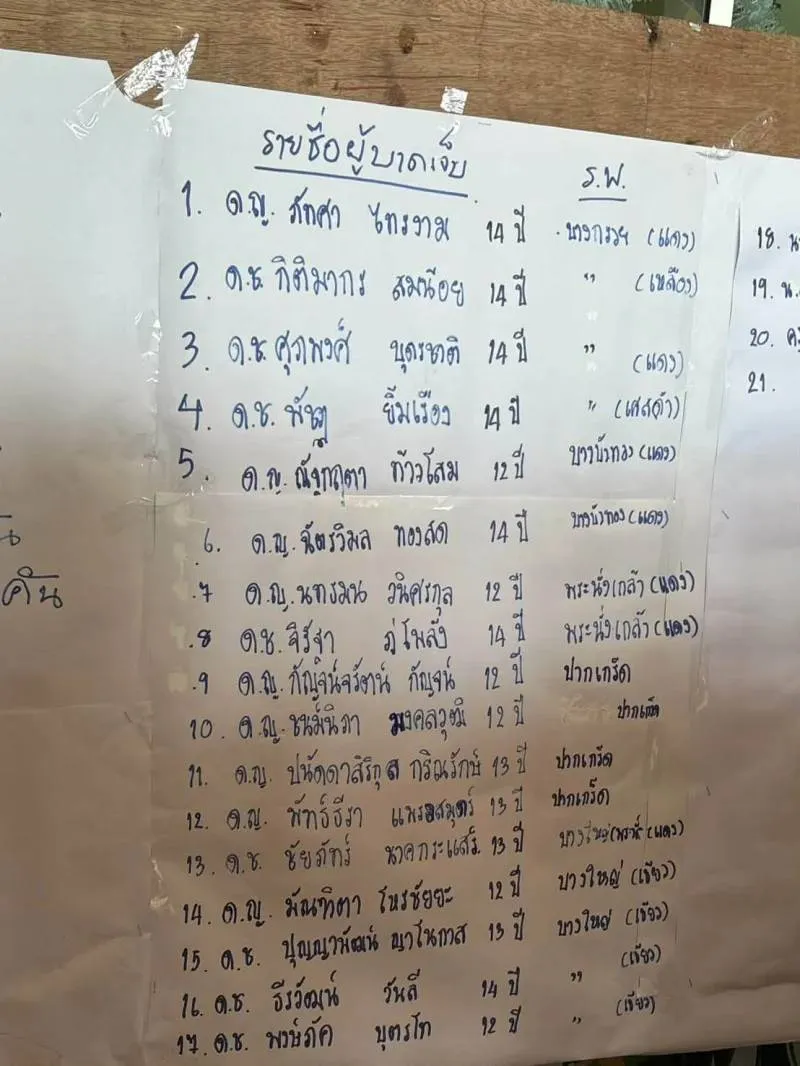 รายชื่อผู้บาดเจ็บ ร.พ.
1. ด.ญ. ภัทศา ไทรงาม 14 ปี บางกรวย (แดง)
2. ด.ช. กิติมากร สมน้อย 14 ปี " (เหลือง)
3. ด.ช. ศุภพงศ์ บุตรชาติ 14 ปี " (แดง)
4. ด.ช. พัชฎ ยิ้มเรือง 14 ปี "
5. ด.ญ. ท้าวโสม 12 ปี บางบัวทอง (แดง)
6. ด.ญ. ฉัตรวิมล ทองสด 14 ปี บางบัวทอง (แดง)
7 ด.ญ. นทรมน วนิศรกุล 12 ปี พระนั่งเกล้า (แดง)
8 ด.ช. จิรัฐา ภู่โพลัง 14 ปี พระนั่งเกล้า (แดง)
9 ด.ญ. กัญจน์ 12 ปี ปากเกร็ด
10 ด.ญ. ชนม์นิภา มงคลวุฒิ 12 ปี ปากเกร็ด
11. ด.ญ. ปนัดดาสิริกุล กริณรักษ์ 13 ปี ปากเกร็ด
12. ด.ญ. พัทธ์ธีรา แพรสมุตร์ 13 ปี ปากเกร็ด
13. ด.ช. ชัยภัทร์ นาคกระแสร์ 13 ปี บางใหญ่ แดง)
14. ด.ญ. มัณฑิตา โหรชัยยะ 12 ปี บางใหญ่ (เขียว)
15. ด.ช. ปุญญาพัฒน์ ญาโนภาส 13 ปี บางใหญ่ (เขียว)
16. ด.ช. ธีรวัฒน์ วันลี 14 ปี " (เขียว)
17. ด.ช. พงษ์ภัค บุตรโท 12 ปี " (เขียว)
คัน
18. น
19. น.
20.
21.